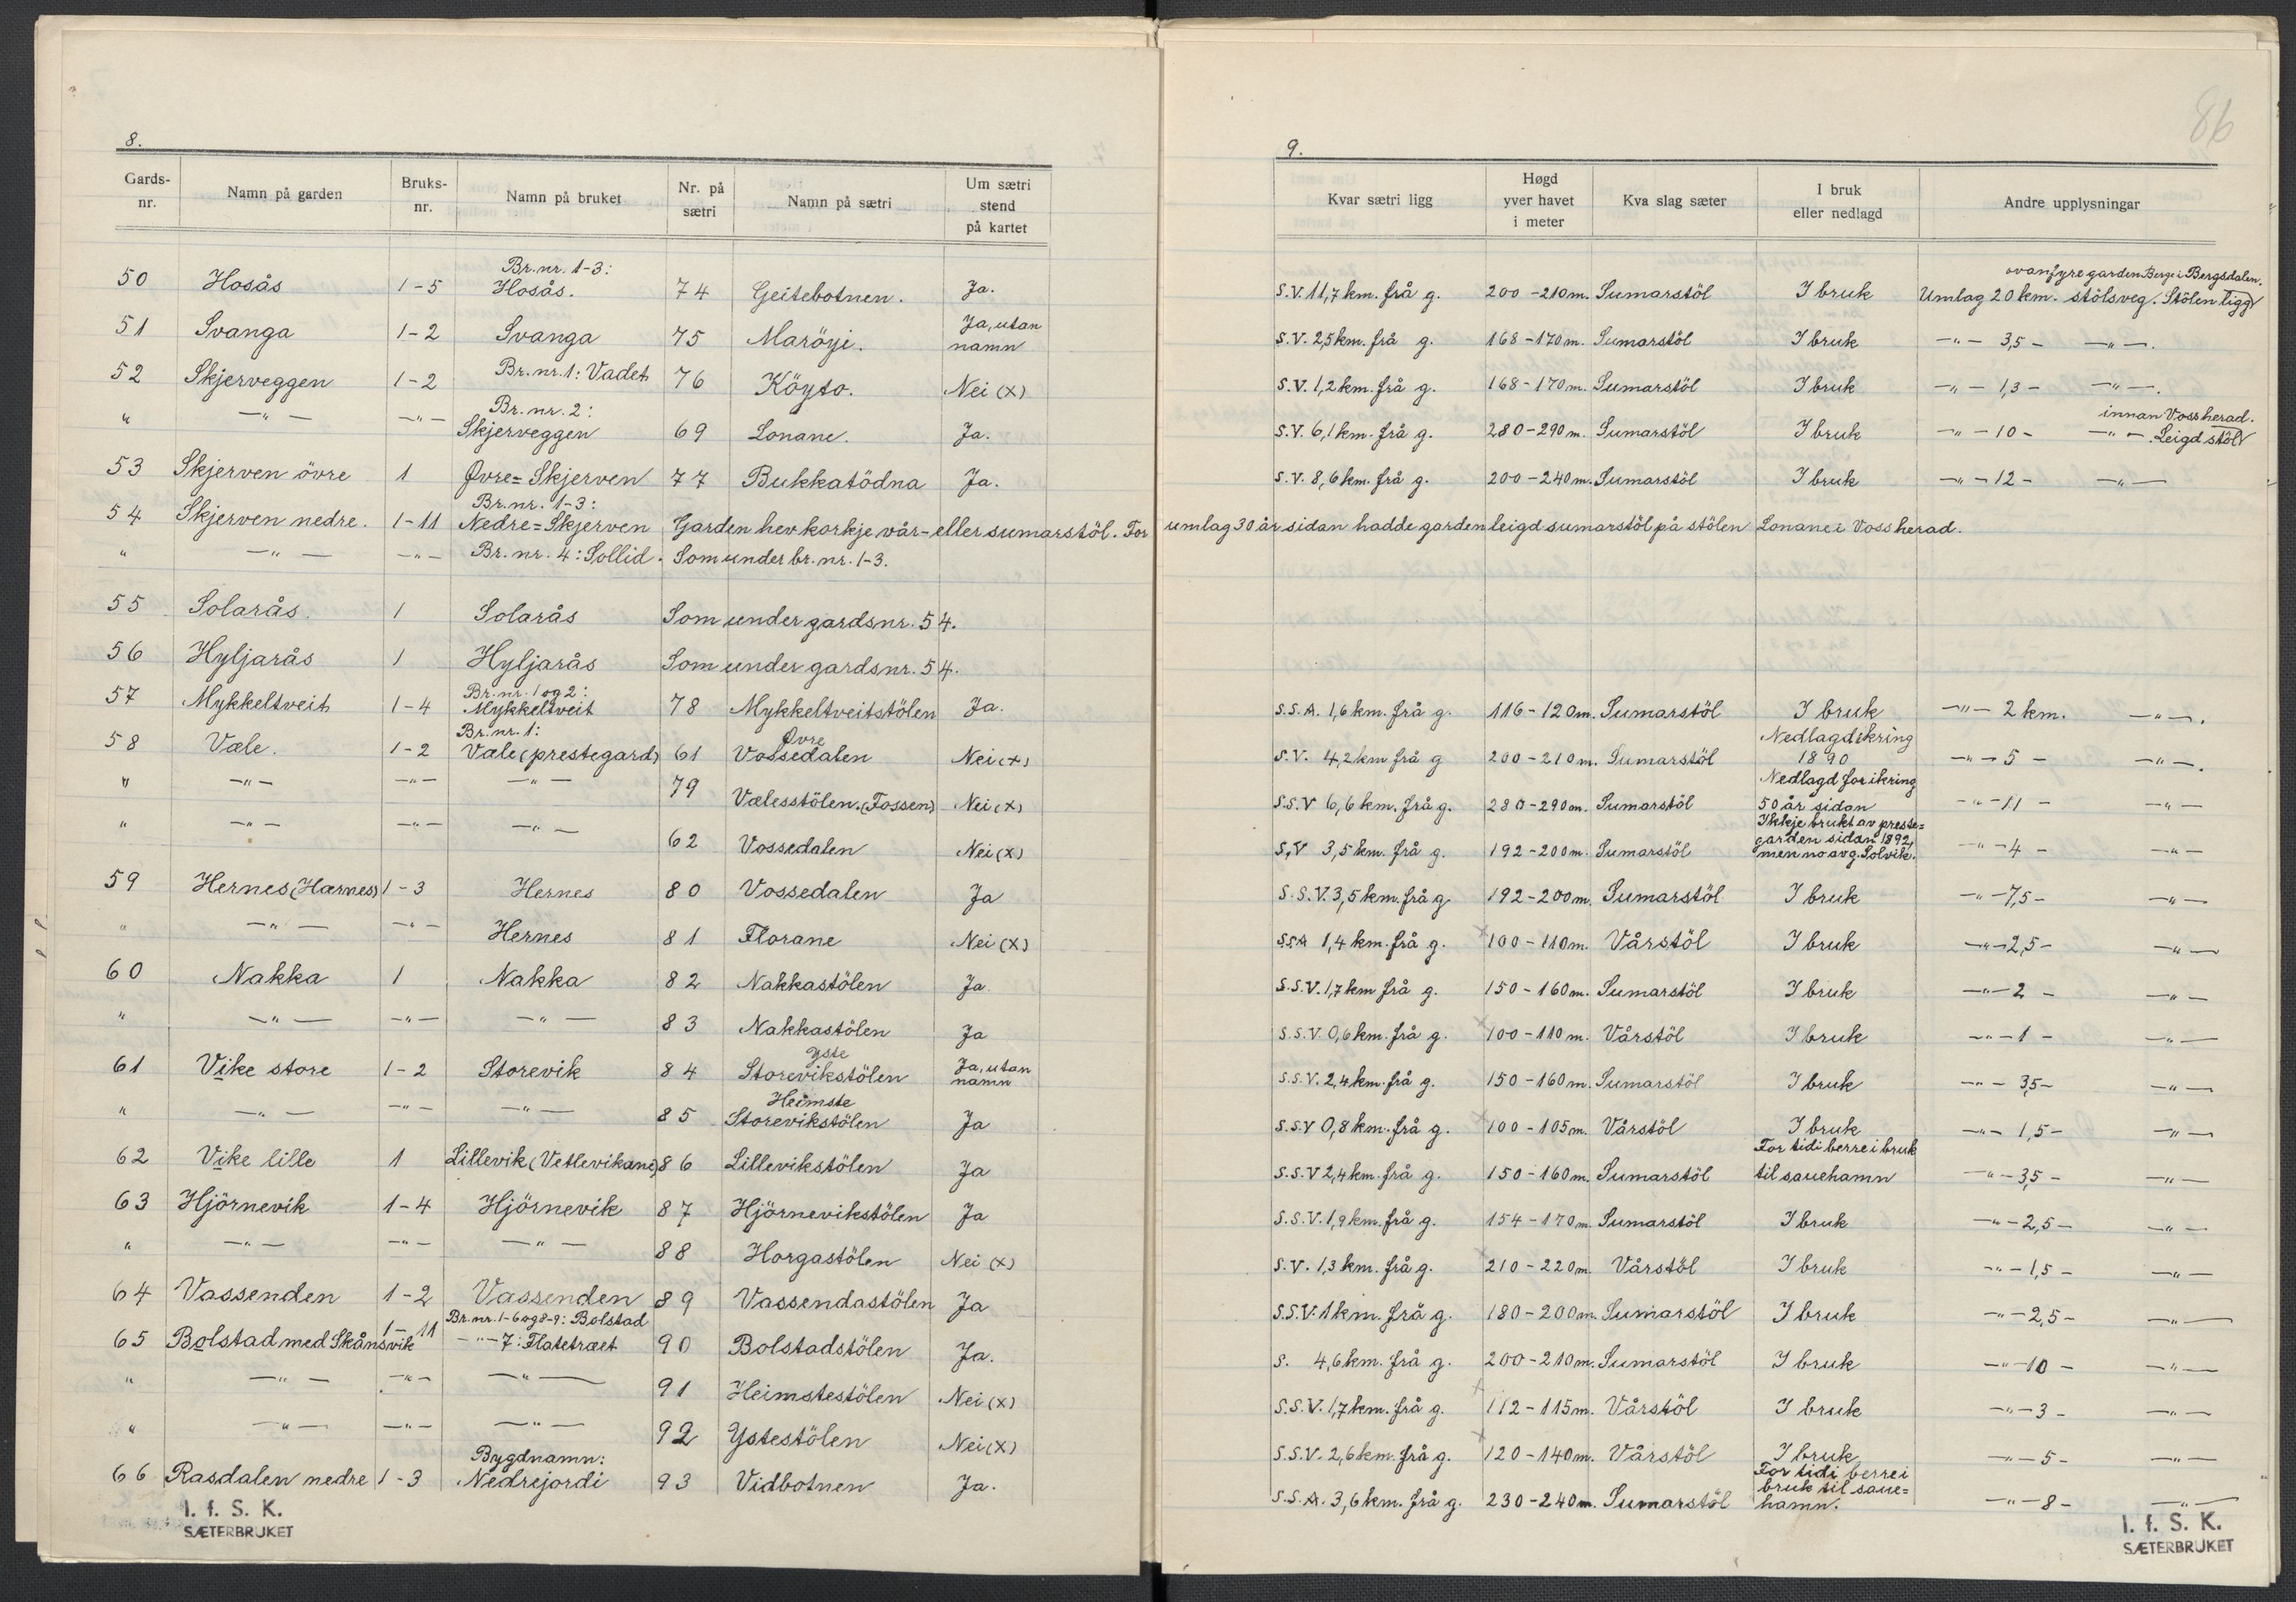 8.
Gards-nr. Namn på garden Bruks-nr. Namn på bruket Nr. på sætri Namn på sætri Um sætri stend på kartet
50 Hosås 1-5 Br.nr. 1-3: Hosås. 74 Geitebotnen. Ja.
51 Svanga 1-2 Svanga 75 Maröyi. Ja, utan namn
52 Skjerveggen 1-2 Br.nr. 1: Vadet 76 Köyto. Nei (x)
" -"- -"- Br.nr. 2: Skjerveggen 69 Lonane. Ja.
53 Skjerven övre 1 Øvre=Skjerven 77 Bukkatödna Ja.
54 Skjerven nedre. 1-11 Br.nr. 1-3: Nedre=Skjerven Garden hev korkje vår- eller sumarstöl. For
" -"- -"- Br. nr. 4: Sollid. Som under br. nr. 1-3.
55 Solarås. 1 Solarås Som under gardsnr. 54.
56 Hyljarås 1 Hyljarås Som under gardsnr. 54.
57 Mykkeltveit 1-4 Br.nr. 1 og 2: Mykkeltveit 78 Mykkeltveitstölen Ja.
58 Væle. 1-2 Br.nr. 1: Væle (prestegard) 61 Øvre Vossedalen Nei (x)
" -"- -"- -"- 79 Vælesstölen. (Fossen) Nei (x)
" -"- -"- -"- 62 Vossedalen Nei (x)
59 Hernes (Hærnes) 1-3 Hernes 80 Vossedalen Ja
" -"- -"- Hernes 81 Florane Nei (x)
60 Nakka 1 Nakka 82 Nakkastölen Ja
" -"- -"- -"- 83 Nakkastölen Ja
61 Vike store 1-2 Storevik 84 Yste Storevikstölen Ja, utan namn
" -"- -"- -"- 85 Heimste Storevikstölen Ja
62 Vike lille 1 Lillevik (Vetlevikane) 86 Lillevikstölen Ja
63 Hjörnevik 1-4 Hjörnevik 87 Hjörnevikstölen Ja
" -"- -"- -"- 88 Horgastölen Nei (x)
64 Vassenden 1-2 Vassenden 89 Vassendastölen Ja
65 Bolstad med Skånsvik 1-11 Br.nr. 1-6 og 8-9: Bolstad -"- 7: Flatetræet 90 Bolstadstölen Ja.
" -"- -"- -"- 91 Heimstestölen Nei (x)
" -"- -"- -"- 92 Ystestölen Nei (x)
66 Rasdalen nedre 1-3 Bygdnamn: Nedrejordi 93 Vidbotnen Ja.
I. f. S. K.
SÆTERBRUKET
86
9.
Kvar sætri ligg Høgd yver havet i meter Kva slag sæter I bruk eller nedlagd Andre upplysningar
S.V. 11,7 km. frå g. 200-210 m. Sumarstöl I bruk Umlag 20 km. stölsveg. Stölen ligg ovanfyre garden Berge i Bergsdalen.
S.V. 2,5 km. frå g. 168-170 m. Sumarstöl I bruk -"- 3,5 - -"-.
S.V. 1,2 km. frå g. 168-170 m. Sumarstöl I bruk -"- 1,3 - -"-.
S.V. 6,1 km. frå g. 280-290 m. Sumarstöl I bruk -"- 10 - -"-. Leigd stöl innan Voss herad.
S.V. 8,6 km. frå g. 200-240 m. Sumarstöl I bruk -"- 12 - -"-
umlag 30 år sidan hadde garden leigd sumarstöl på stölen Lonane i Voss herad.
S.S.A. 1,6 km. frå g. 116-120 m. Sumarstöl I bruk -"- 2 km. -"-.
S.V. 4,2 km frå g 200-210 m. Sumarstöl Nedlagd ikring 1890 -"- 5 - -"-.
S.S.V 6,6 km. frå g. 280-290 m. Sumarstöl Nedlagd for ikring 50 år sidan -"- 11 - -"-
S,V 3,5 km. frå g. 192-200 m. Sumarstöl Ikkje brukt av preste=garden sidan 1892, men no av g. Solvik. -"- 4 - -"-
S.S.V. 3,5 km. frå g. 192-200 m. Sumarstöl I bruk -"- 7,5 - -"-
S.S.A 1,4 km. frå g. 100-110 m. Vårstöl I bruk -"- 2,5 - -"-
S.S.V. 1,7 km frå g. 150-160 m. Sumarstöl I bruk -"- 2 - -"-
S.S.V. 0,6 km. frå g. 100-110 m. Vårstöl I bruk -"- 1 - -"-
S.S.V. 2,4 km. frå g. 150-160 m. Sumarstöl I bruk -"- 3,5 - -"-
S.S.V 0,8 km. frå g. 100-105 m. Vårstöl I bruk -"- 1,5 - -"-
S.S.V 2,4 km. frå g. 150-160 m. Sumarstöl For tidi berre i bruk til sauehamn -"- 3,5 - -"-
S.S.V. 1,9 km. frå g. 154-170 m Sumarstöl I bruk -"- 2,5 - -"-
S.V. 1,3 km. frå g. 210-220 m. Vårstöl I bruk -"- 1,5 - -"-
S.S.V. 1 km. frå g. 180-200 m. Sumarstöl I bruk -"- 2,5 - -"-
S. 4,6 km. frå g. 200-210 m. Sumarstöl I bruk -"- 10 - -"-
S.S.V. 1,7 km. frå g. 112-115 m. Vårstöl I bruk -"- 3 - -"-
S.S.V. 2,6 km. frå g. 120-140 m. Vårstöl I bruk -"- 5 - -"-
S.S.A. 3,6 km. frå g. 230-240 m. Sumarstöl For tidi berre i bruk til saue=hamn. -"- 8 - -"-
I. f. S. K.
SÆTERBRUKET